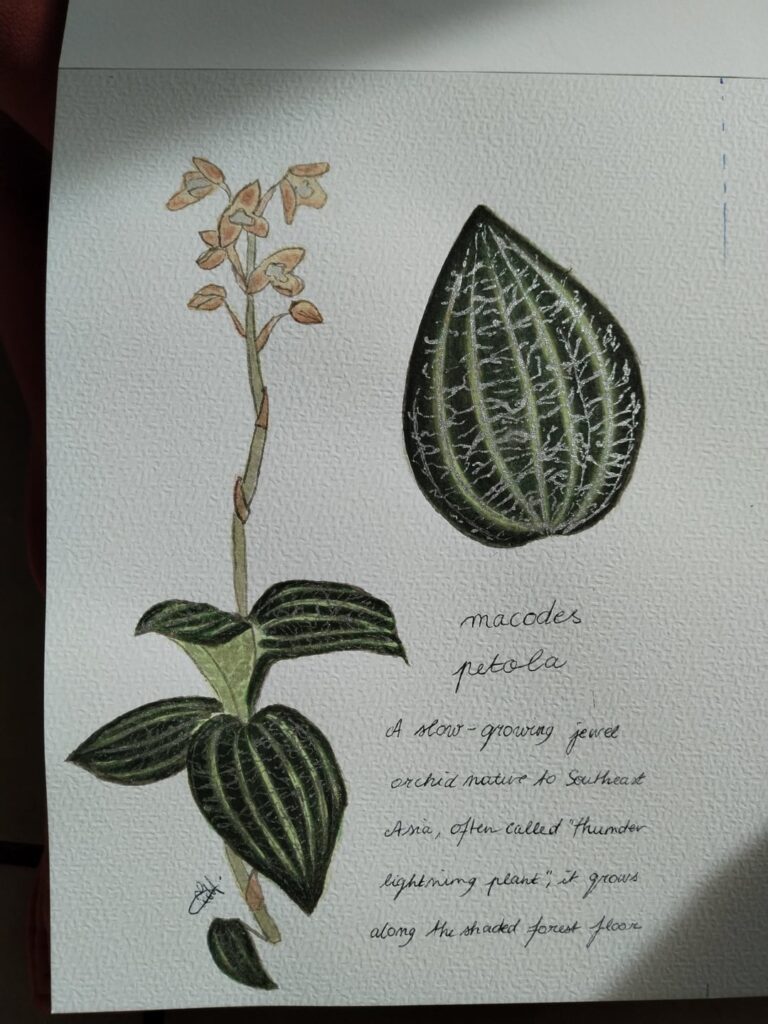 macodes
petola
A slow-growing jewel
orchid native to Southeast
Asia, often called "thunder
lightning plant", it grows
along the shaded forest floor